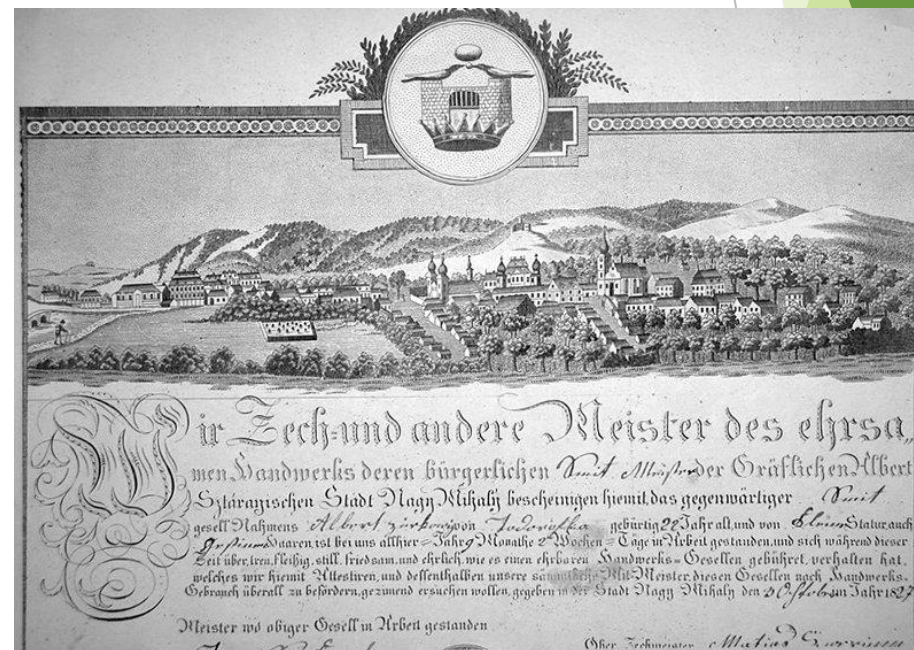 Wir Zech-und andere Meister des ehrsa„
men Handwerks deren bürgerlichen Smit Meister der Gräflichen Albert
Sztárayischen Stadt Nagy Mihalÿ bescheinigen hiemit das gegenwärtiger Smit
gesell Nahmens Albert von gebürtig 22 Jahr alt, und von Klein Statur, auch
Haaren, ist bei uns allhier = Jahr 9 Monathe 2 Wochen = Täge in Arbeit gestanden, und sich während dieser
Zeit über, treu, fleißig, still, friedsam, und ehrlich, wie es einen ehrbaren Handwerks = Gesellen gebühret, verhalten hat,
welches wir hiemit Attestiren, und dessenthalben unsere Mit-Meister, diesen Gesellen nach Handwerks-
Gebrauch überall zu befördern, gezimend ersuchen wollen, gegeben in der Stadt Nagy Mihaly den im Jahr 1827
Meister wo obiger Gesell in Arbeit gestanden
Ober Zechmeister Matias